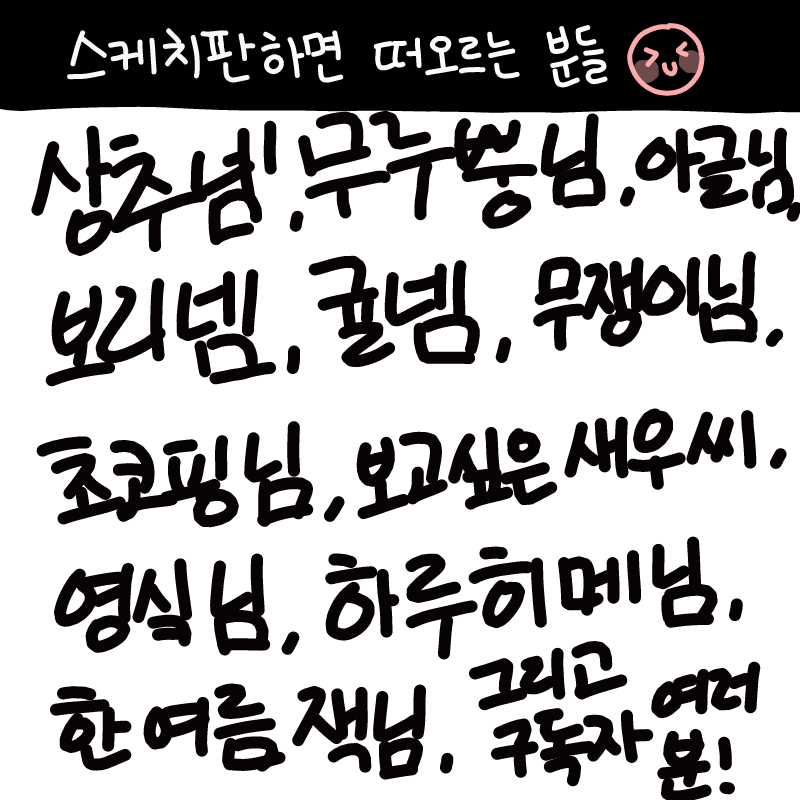 스케치판하면 떠오르는 분들
상추념, 무루뿅님, 아글님,
보리넴, 귤넴, 무쟁이님,
초코핑님, 보고싶은 새우씨,
영식님, 하루히메님,
한여름잭님, 그리고 구독자 여러분!